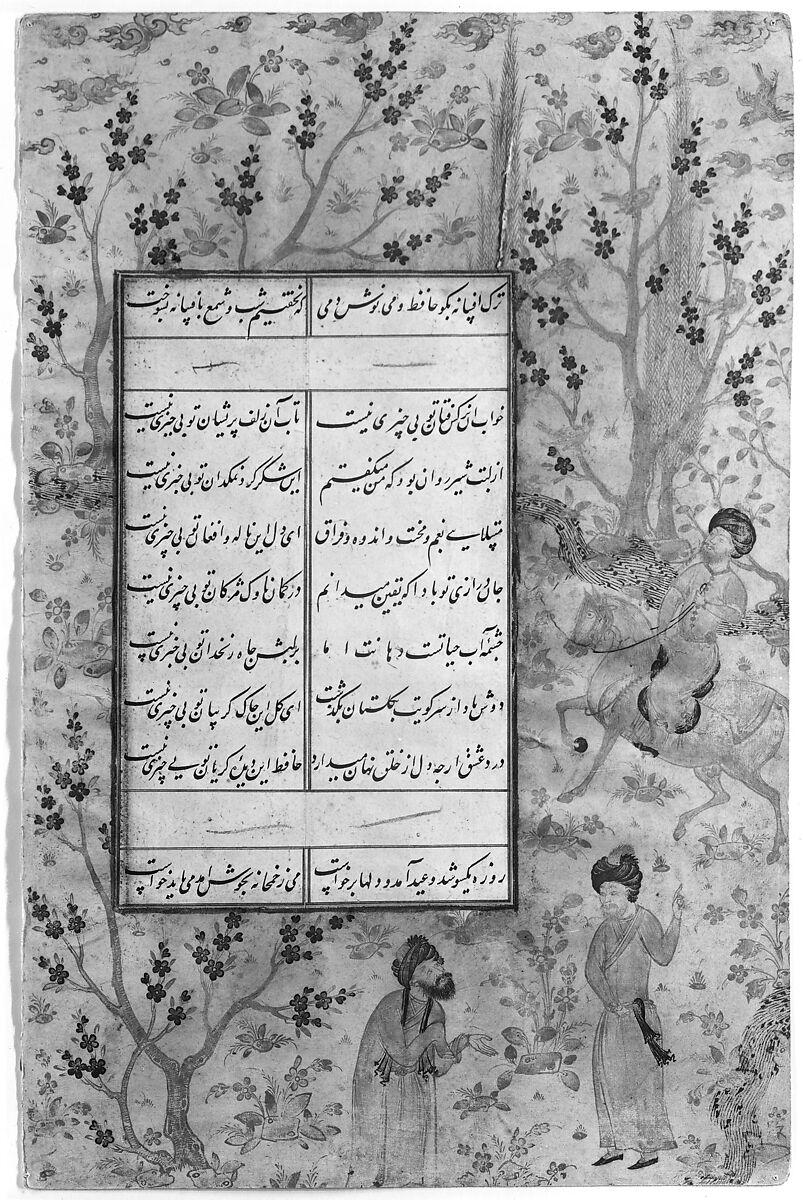 ترک افسانه بگو حافظ و می نوش دمی که نخفتیم شب و شمع بافسانه بسوخت
خواب ان نرکس فتان تو بی چیزی نیست تاب آن زلف پریشان تو بی چیزی نیست
از لبت شیر روان بود که من میکفتم این شکر کرد نمکدان تو بی چیزی نیست
مبتلایی بغم و محنت و اندوه و فراق ای دل این ناله و افغان تو بی چیزی نیست
جان درازی تو بادا که یقین میدانم در کمان ناوک مژکان تو بی چیزی نیست
چشمه آب حیاتست دهانت اما بر لبش چاه زنخدان تو بی چیزی نیست
دوش باد از سر کویت بکلستان بکذشت ای کل این چاک کریبان تو بی چیزی نیست
درد عشق ارچه دل از خلق نهان میدارد حافظ این دیده کریان تو بی چیزی نیست
روزه یکسو شد و عید آمد و دلها برخواست می ز خمخانه بجوش امد می باید خواست